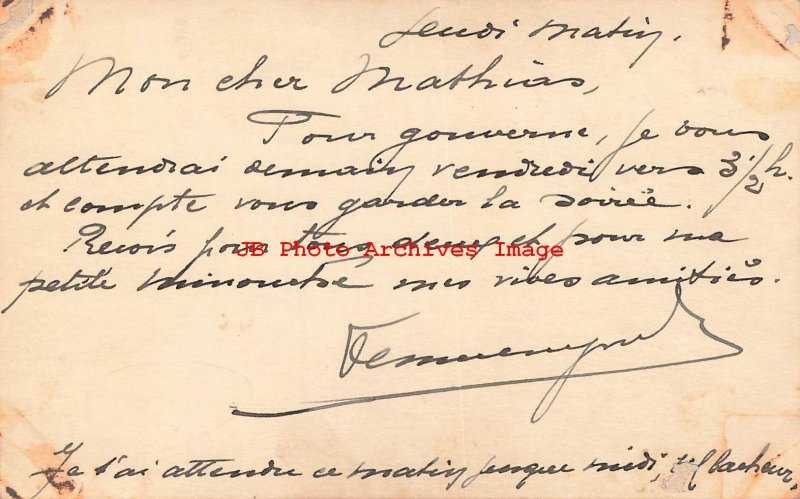 Jeudi matin.
Mon cher Mathias,
Pour gouverne, je vous
attendrai demain vendredi vers 3 1/2 h.
et compte vous garder la soirée.
Reçois pour tous deux et pour ma
JB Photo Archives Image
petite minouche mes vives amitiés.
Je t'ai attendu ce matin jusque midi, lacheur,